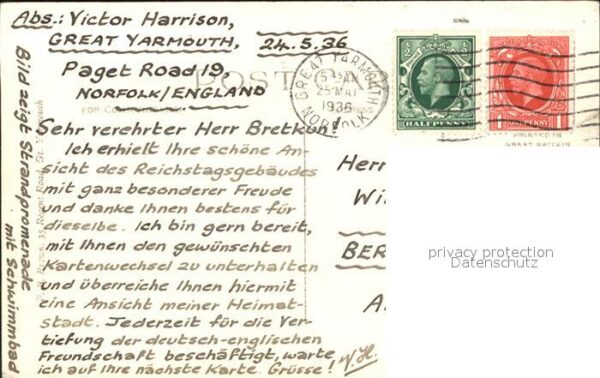 Abs.: Victor Harrison,
GREAT YARMOUTH, 24.5.36
Paget Road 19,
NORFOLK/ENGLAND
Sehr verehrter Herr Bretkuh!
Ich erhielt Ihre schöne An-
sicht des Reichstagsgebäudes
mit ganz besonderer Freude
und danke Ihnen bestens für
dieselbe. Ich bin gern bereit,
mit Ihnen den gewünschten
Kartenwechsel zu unterhalten
und überreiche Ihnen hiermit
eine Ansicht meiner Heimat-
stadt. Jederzeit für die Ver-
tiefung der deutsch-englischen
Freundschaft beschäftigt, warte
ich auf Ihre nächste Karte. Grüsse! V.H.
Bild zeigt Strandpromenade
mit Schwimmbad
POST
FOR
GREAT YARMOUTH
NORFOLK
25 MAY
1936
HALFPENNY
1 ONE PENNY 1
PRINTED IN
GREAT BRITAIN
Herr
Wi
BER
A
privacy protection
Datenschutz